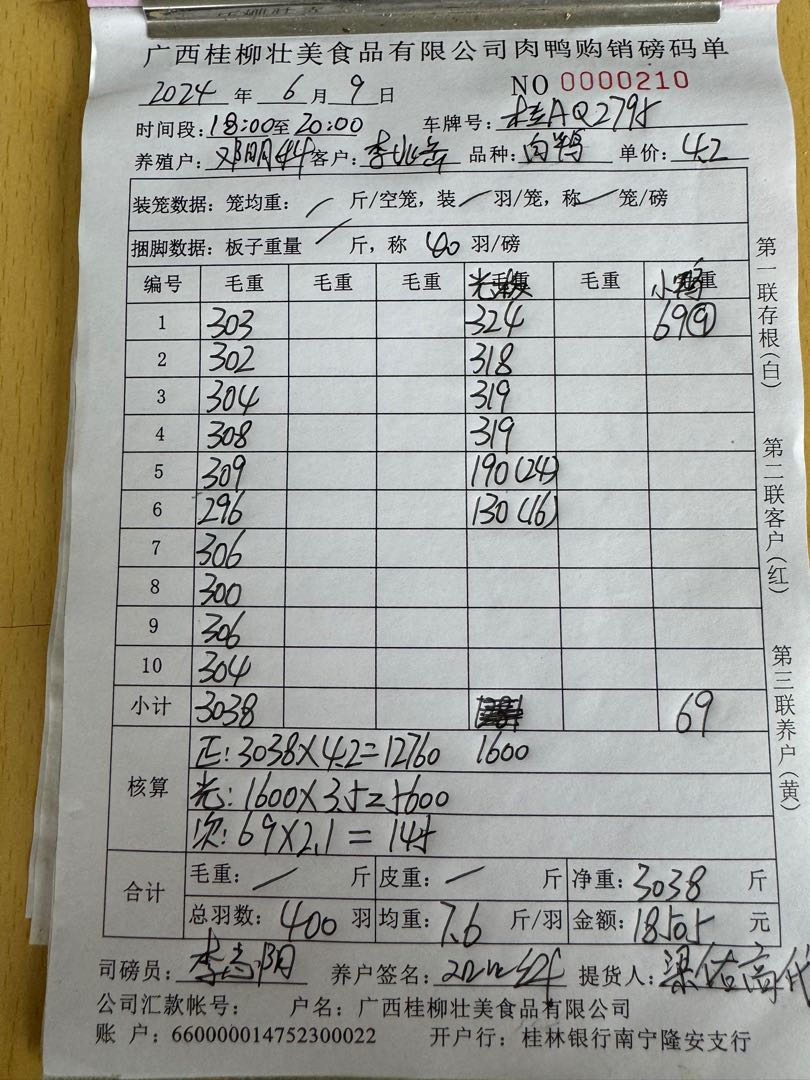 广西桂柳壮美食品有限公司肉鸭购销磅码单
2024 年 6 月 9 日 NO 0000210
时间段:18:00至20:00 车牌号:桂AQ2795
养殖户:邓明 客户:李兆岳 品种:白鸭 单价:4.2
装笼数据:笼均重: / 斤/空笼,装 / 羽/笼,称 / 笼/磅
捆脚数据:板子重量 / 斤,称 40 羽/磅
编号 毛重 毛重 毛重 光 毛重 小鸭重
1 303 324 69(9)
2 302 318
3 304 319
4 308 319
5 309 190(24)
6 296 130(16)
7 306
8 300
9 306
10 304
小计 3038 69
核算 正:3038X4.2=12760 1600
光:1600X3.5=5600
次:69X2.1=145
合计 毛重: / 斤 皮重: / 斤 净重:3038 斤
总羽数:400 羽 均重:7.6 斤/羽 金额:18505 元
司磅员:李高阳 养户签名: 提货人:梁佑高代
公司汇款帐号: 户名:广西桂柳壮美食品有限公司
账 户:660000014752300022 开户行:桂林银行南宁隆安支行
第一联存根(白)
第二联客户(红)
第三联养户(黄)